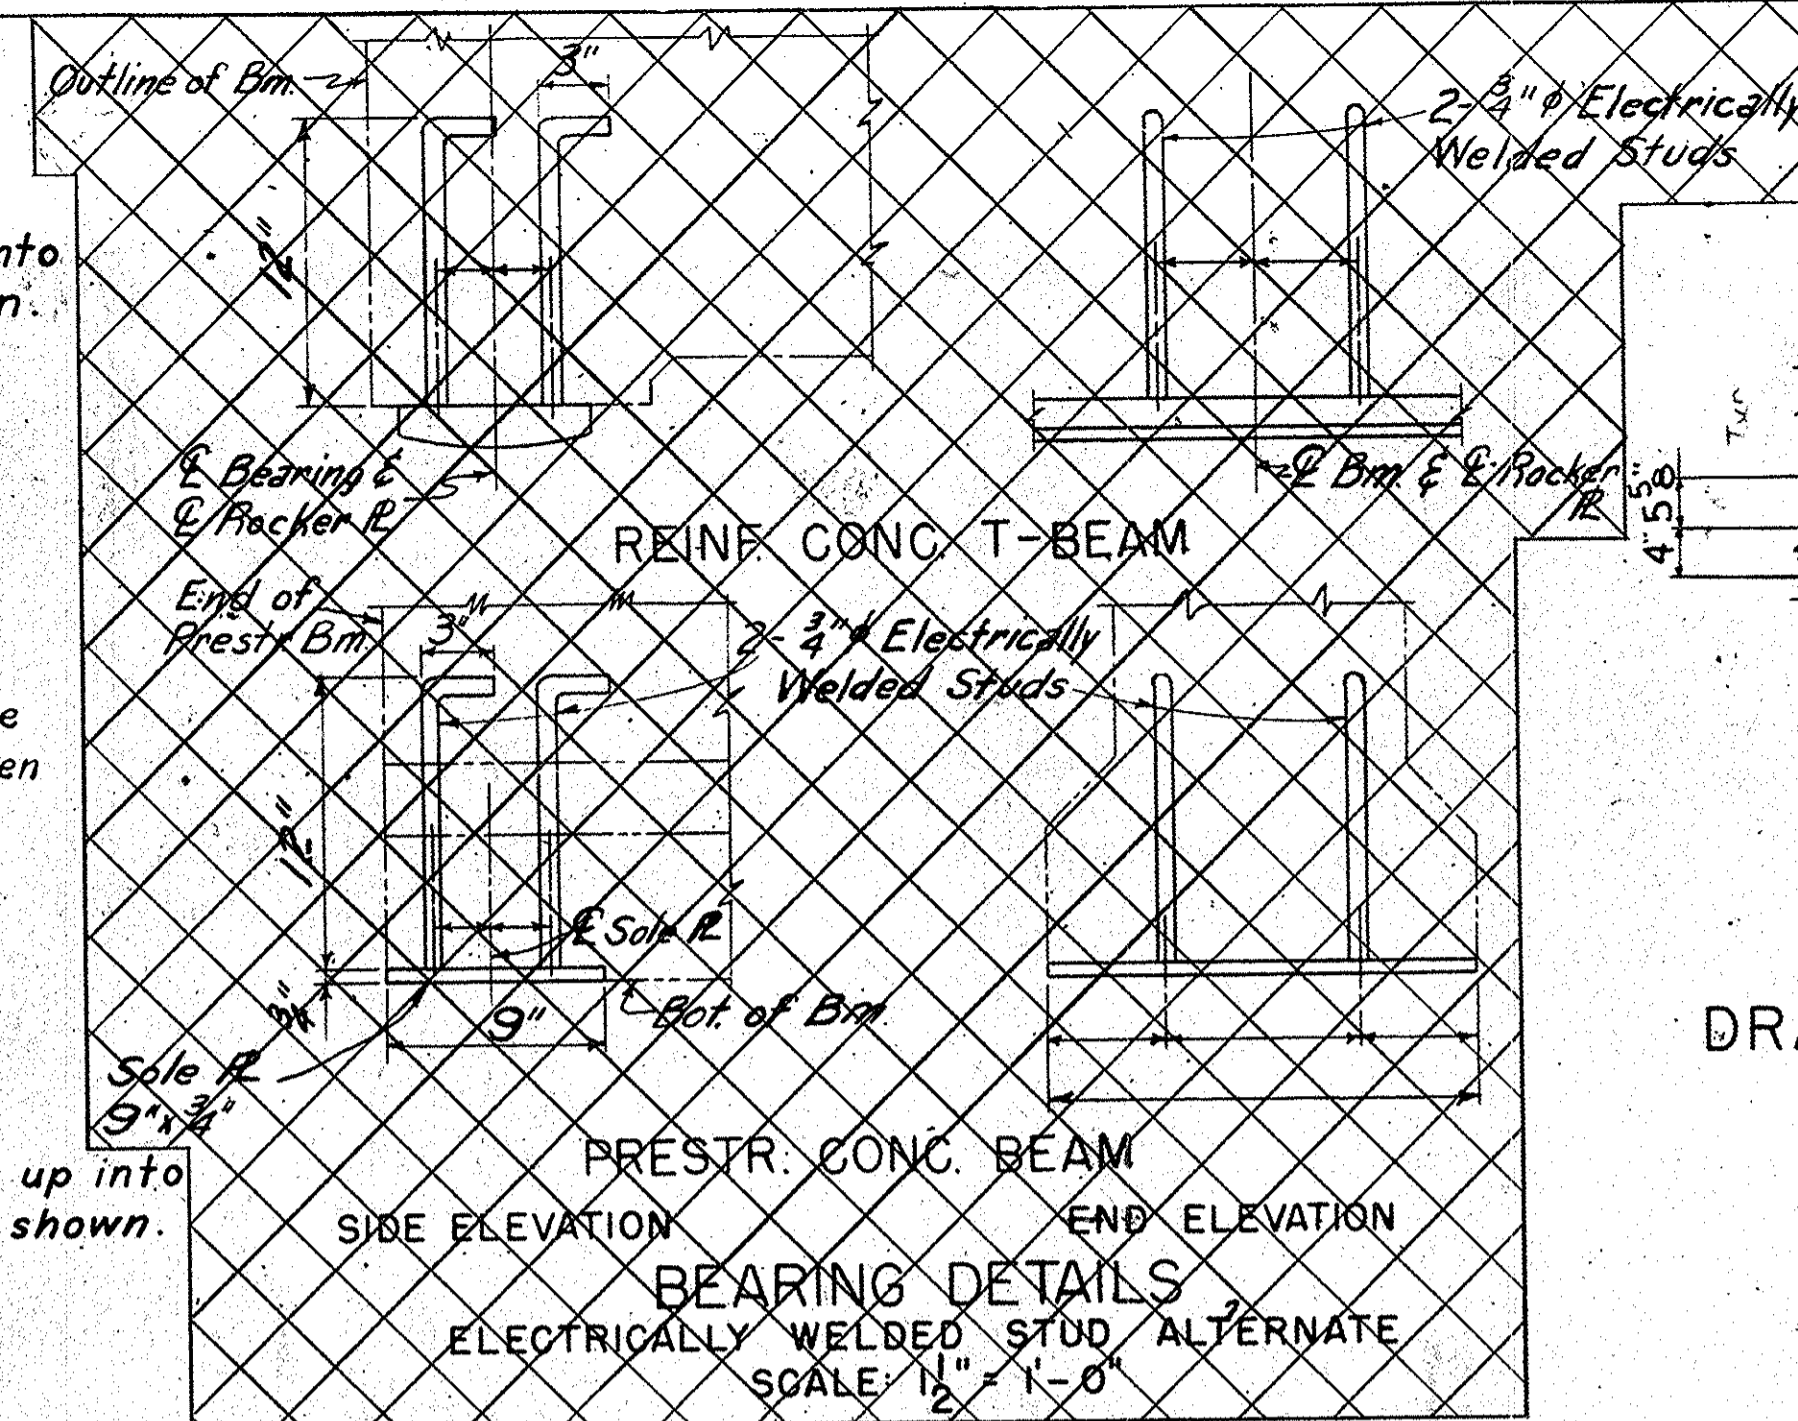 Outline of Bm.
3"
2- 3/4" ϕ Electrically
Welded Studs
12"
nto
n.
℄ Bearing &
℄ Rocker ℞
℄ Bm. & ℄ Rocker
℞
REINF. CONC. T-BEAM
5 5/8"
4"
End of
Prestr. Bm.
3"
2- 3/4" ϕ Electrically
Welded Studs
e
en
12"
℄ Sole ℞
3/4"
9"
Bot. of Bm.
Sole ℞
9" x 3/4"
DRA
up into
shown.
PRESTR. CONC. BEAM
SIDE ELEVATION
END ELEVATION
BEARING DETAILS
ELECTRICALLY WELDED STUD ALTERNATE
SCALE: 1 1/2" = 1'-0"